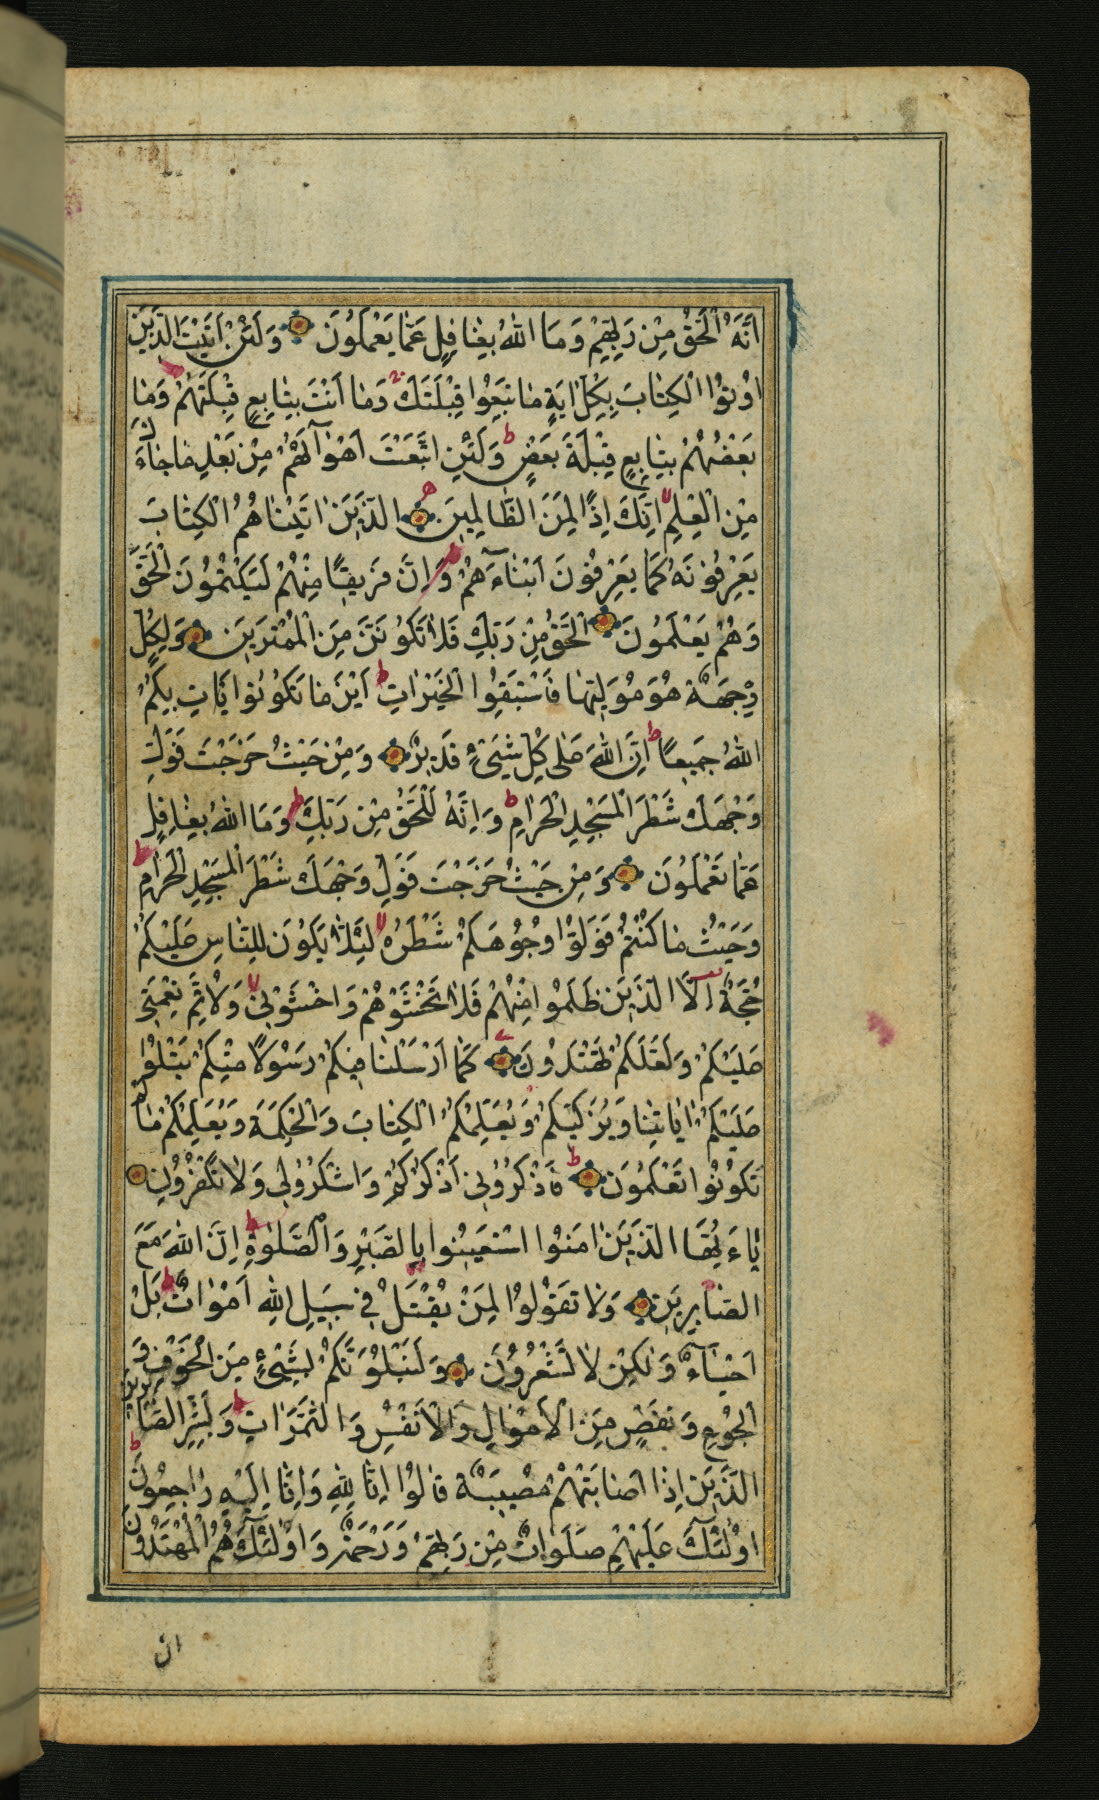 اَنَّهُ الْحَقُّ مِنْ رَبِّهِمْ وَمَا اللّٰهُ بِغٰافِلٍ عَمّٰا يَعْمَلُونَ وَلَئِنْ اَتَيْتَ الَّذِينَ
اُوتُوا الْكِتٰابَ بِكُلِّ اٰيَةٍ مٰا تَبِعُوا قِبْلَتَكَ وَمٰا اَنْتَ بِتٰابِعٍ قِبْلَتَهُمْ وَمٰا
بَعْضُهُمْ بِتٰابِعٍ قِبْلَةَ بَعْضٍ ط وَلَئِنِ اتَّبَعْتَ اَهْوٰآءَهُمْ مِنْ بَعْدِ مٰا جٰآءَكَ
مِنَ الْعِلْمِ لا اِنَّكَ اِذًا لَمِنَ الظّٰالِمِينَ الَّذِينَ اٰتَيْنٰاهُمُ الْكِتٰابَ
يَعْرِفُونَهُ كَمٰا يَعْرِفُونَ اَبْنٰآءَهُمْ ط وَاِنَّ فَرِيقًا مِنْهُمْ لَيَكْتُمُونَ الْحَقَّ
وَهُمْ يَعْلَمُونَ الْحَقُّ مِنْ رَبِّكَ فَلٰا تَكُونَنَّ مِنَ الْمُمْتَرِينَ وَلِكُلٍّ
وِجْهَةٌ هُوَ مُوَلِّيهٰا فَاسْتَبِقُوا الْخَيْرٰاتِ ط اَيْنَ مٰا تَكُونُوا يَأْتِ بِكُمُ
اللّٰهُ جَمِيعًا ط اِنَّ اللّٰهَ عَلٰى كُلِّ شَيْءٍ قَدِيرٌ وَمِنْ حَيْثُ خَرَجْتَ فَوَلِّ
وَجْهَكَ شَطْرَ الْمَسْجِدِ الْحَرٰامِ ط وَاِنَّهُ لَلْحَقُّ مِنْ رَبِّكَ ط وَمَا اللّٰهُ بِغٰافِلٍ
عَمّٰا تَعْمَلُونَ وَمِنْ حَيْثُ خَرَجْتَ فَوَلِّ وَجْهَكَ شَطْرَ الْمَسْجِدِ الْحَرٰامِ ط
وَحَيْثُ مٰا كُنْتُمْ فَوَلُّوا وُجُوهَكُمْ شَطْرَهُ لا لِئَلّٰا يَكُونَ لِلنّٰاسِ عَلَيْكُمْ
حُجَّةٌ اِلَّا الَّذِينَ ظَلَمُوا مِنْهُمْ فَلٰا تَخْشَوْهُمْ وَاخْشَوْنِي لا وَلِاُتِمَّ نِعْمَتِي
عَلَيْكُمْ وَلَعَلَّكُمْ تَهْتَدُونَ كَمٰا اَرْسَلْنٰا فِيكُمْ رَسُولًا مِنْكُمْ يَتْلُوا
عَلَيْكُمْ اٰيٰاتِنٰا وَيُزَكِّيكُمْ وَيُعَلِّمُكُمُ الْكِتٰابَ وَالْحِكْمَةَ وَيُعَلِّمُكُمْ مٰا لَمْ
تَكُونُوا تَعْلَمُونَ ط فَاذْكُرُونِي اَذْكُرْكُمْ وَاشْكُرُولِي وَلٰا تَكْفُرُونِ
يٰآءَيُّهَا الَّذِينَ اٰمَنُوا اسْتَعِينُوا بِالصَّبْرِ وَالصَّلٰوةِ ط اِنَّ اللّٰهَ مَعَ
الصّٰابِرِينَ وَلٰا تَقُولُوا لِمَنْ يُقْتَلُ فِي سَبِيلِ اللّٰهِ اَمْوٰاتٌ ط بَلْ
اَحْيٰآءٌ وَلٰكِنْ لٰا تَشْعُرُونَ وَلَنَبْلُوَنَّكُمْ بِشَيْءٍ مِنَ الْخَوْفِ وَ
الْجُوعِ وَنَقْصٍ مِنَ الْاَمْوٰالِ وَالْاَنْفُسِ وَالثَّمَرٰاتِ ط وَبَشِّرِ الصّٰابِرِينَ
الَّذِينَ اِذٰا اَصٰابَتْهُمْ مُصِيبَةٌ قٰالُوا اِنّٰا لِلّٰهِ وَاِنّٰا اِلَيْهِ رٰاجِعُونَ ط
اُولٰئِكَ عَلَيْهِمْ صَلَوٰاتٌ مِنْ رَبِّهِمْ وَرَحْمَةٌ وَاُولٰئِكَ هُمُ الْمُهْتَدُونَ
ان